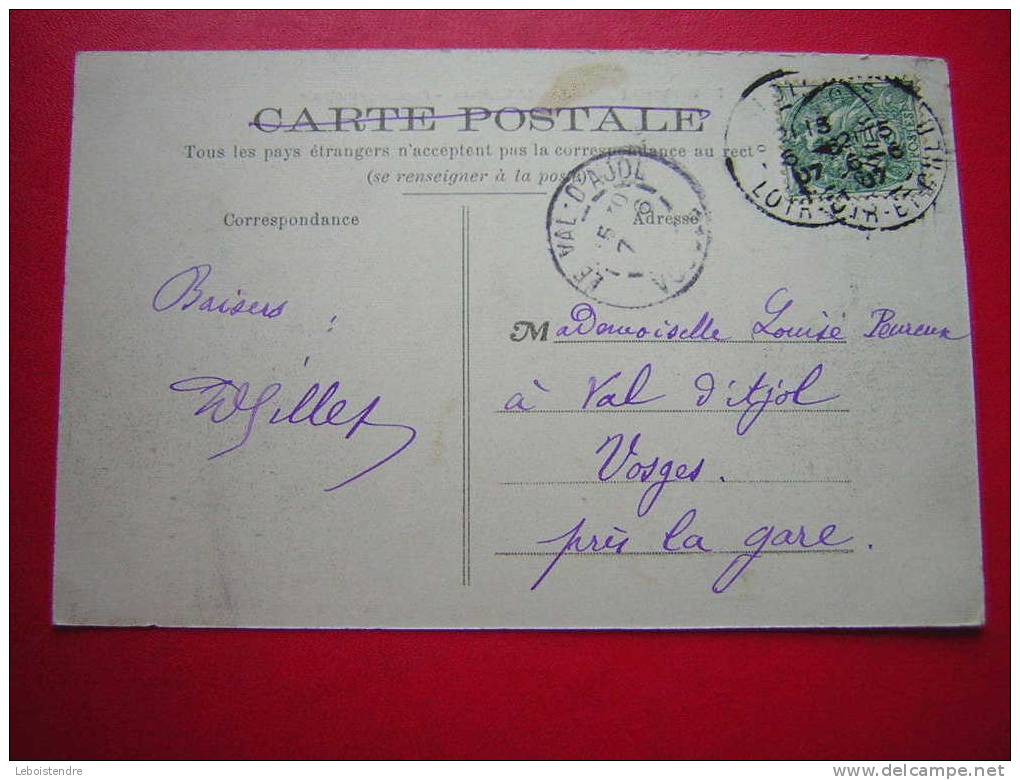 CARTE POSTALE
Tous les pays étrangers n'acceptent pas la correspondance au recto
(se renseigner à la poste)
Correspondance
Adresse
LE VAL-D'AJOL
LOIR-ET-CH
Baisers
Mademoiselle Louise Peureux
à Val d'Ajol
Vosges.
près la gare.
Leboistendre
www.delcampe.net